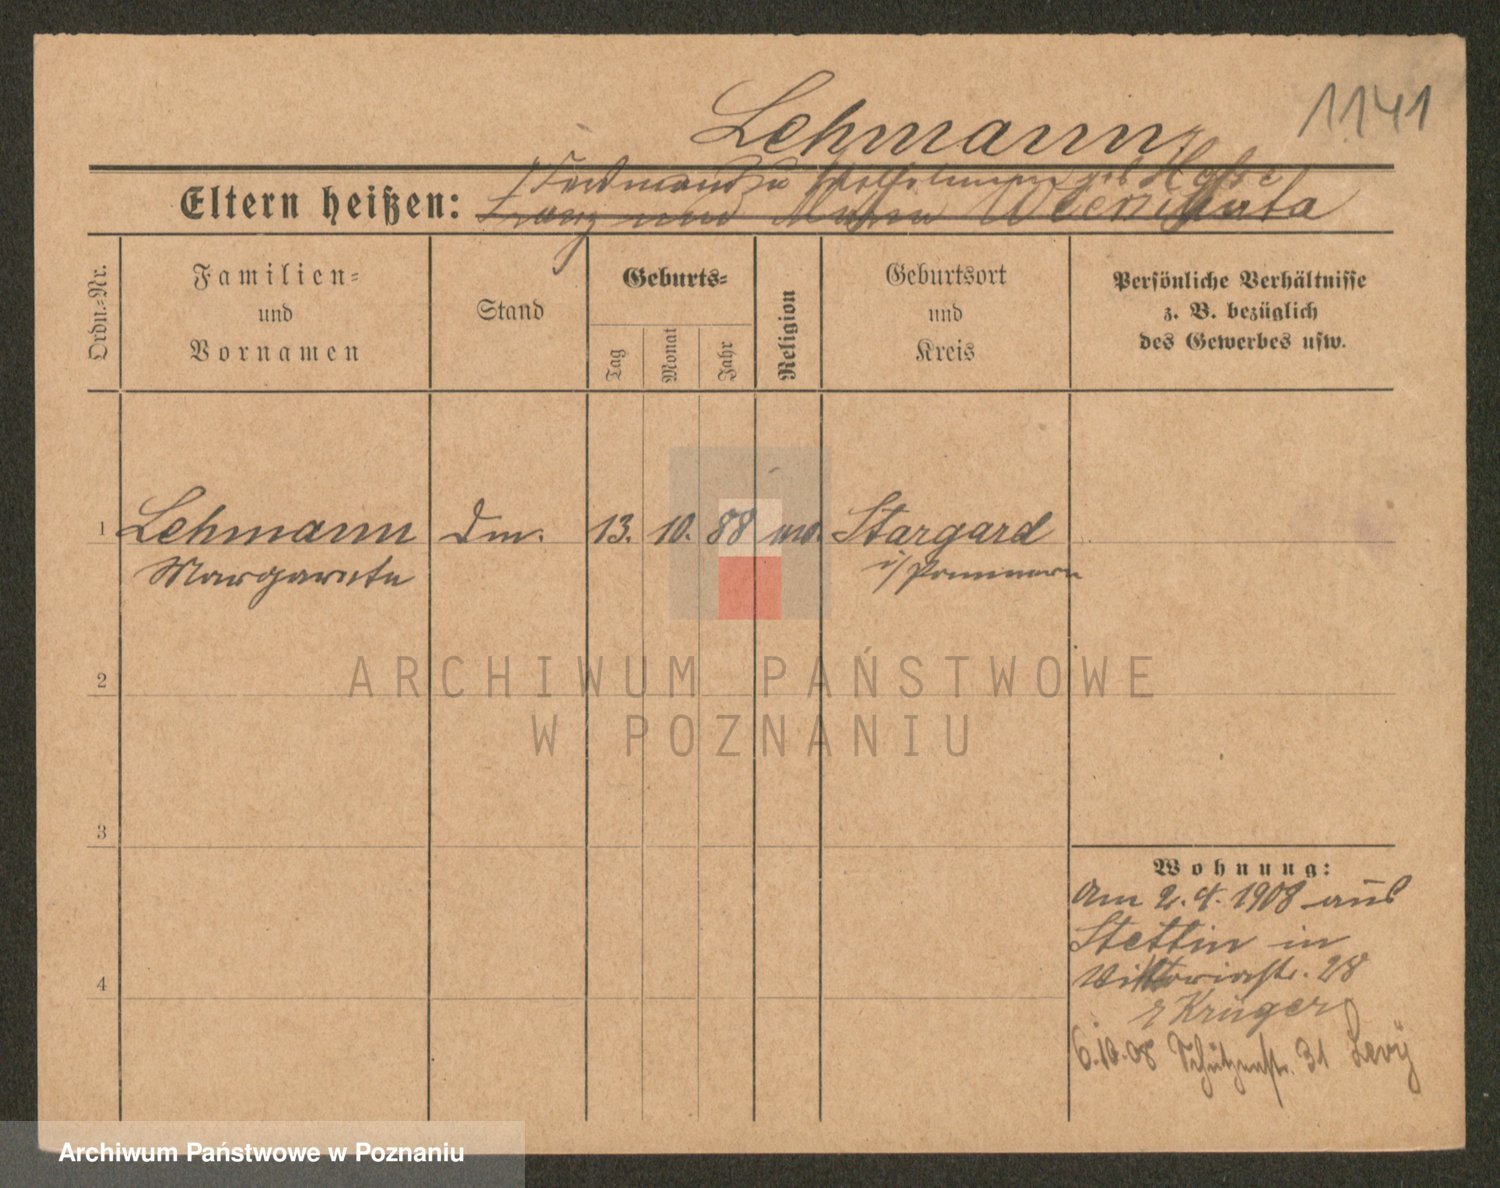 1141
Lehmann
Ferdinand u Wilhelmine geb Hasse
Eltern heißen: Franz und Maria
Ordn.-Nr.
Familien-
und
Vornamen
Stand
Geburts-
Tag
Monat
Jahr
Religion
Geburtsort
und
Kreis
Persönliche Verhältnisse
z. B. bezüglich
des Gewerbes usw.
1 Lehmann 13. 10. 88 Stargard
Margarete i/Pommern
2
3
4
Wohnung:
Am 2. 4. 1908 aus
Stettin in
Viktoriastr. 28
Krüger
6.10.08 Schützenstr. 31 Levÿ
ARCHIWUM PAŃSTWOWE
W POZNANIU
Archiwum Państwowe w Poznaniu